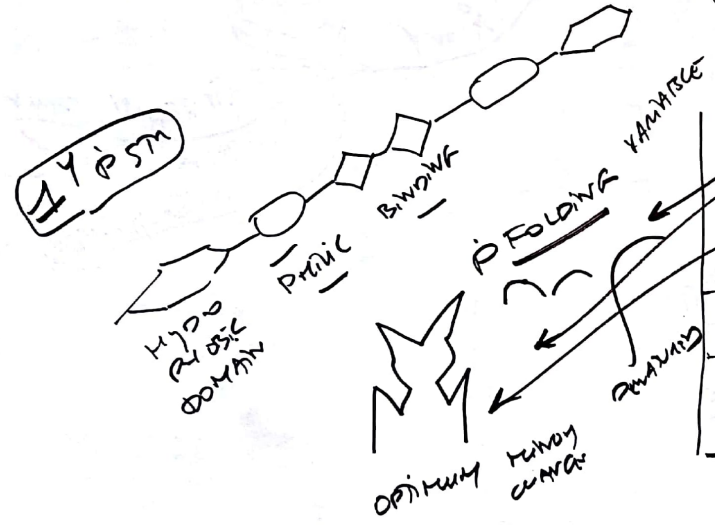 1Y P STR
HYDO
PHOBIC
DOMAIN
PHILIC
BINDING
P FOLDING
VARIABLE
OPTIMUM
MINOR
CHANGE